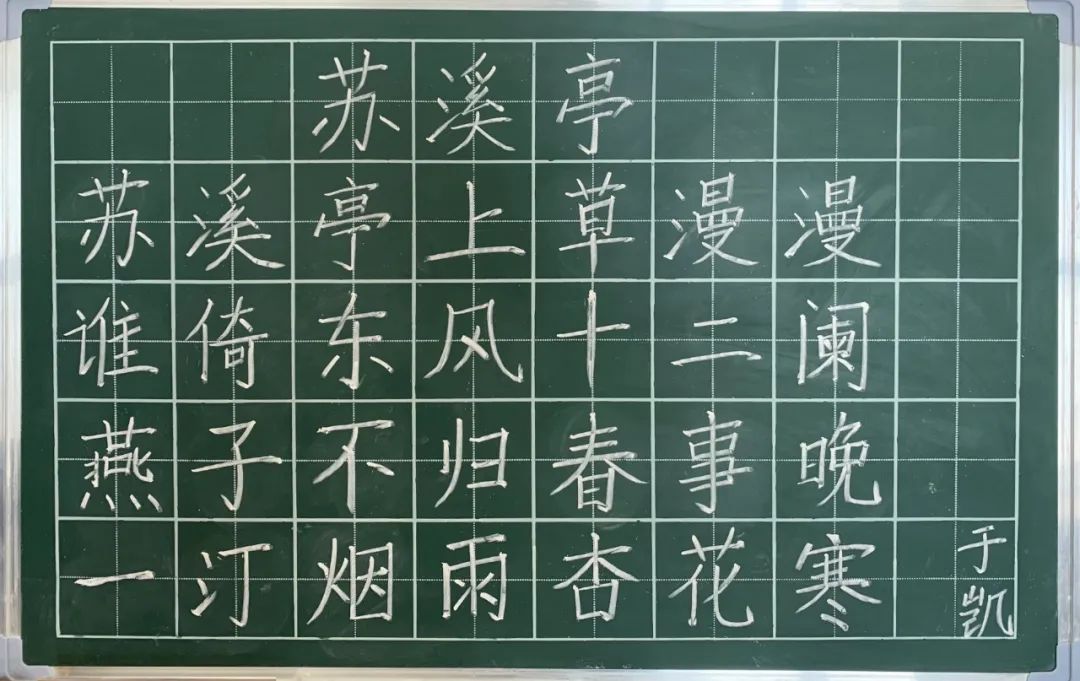 苏溪亭
苏溪亭上草漫漫
谁倚东风十二阑
燕子不归春事晚
一汀烟雨杏花寒
于凯